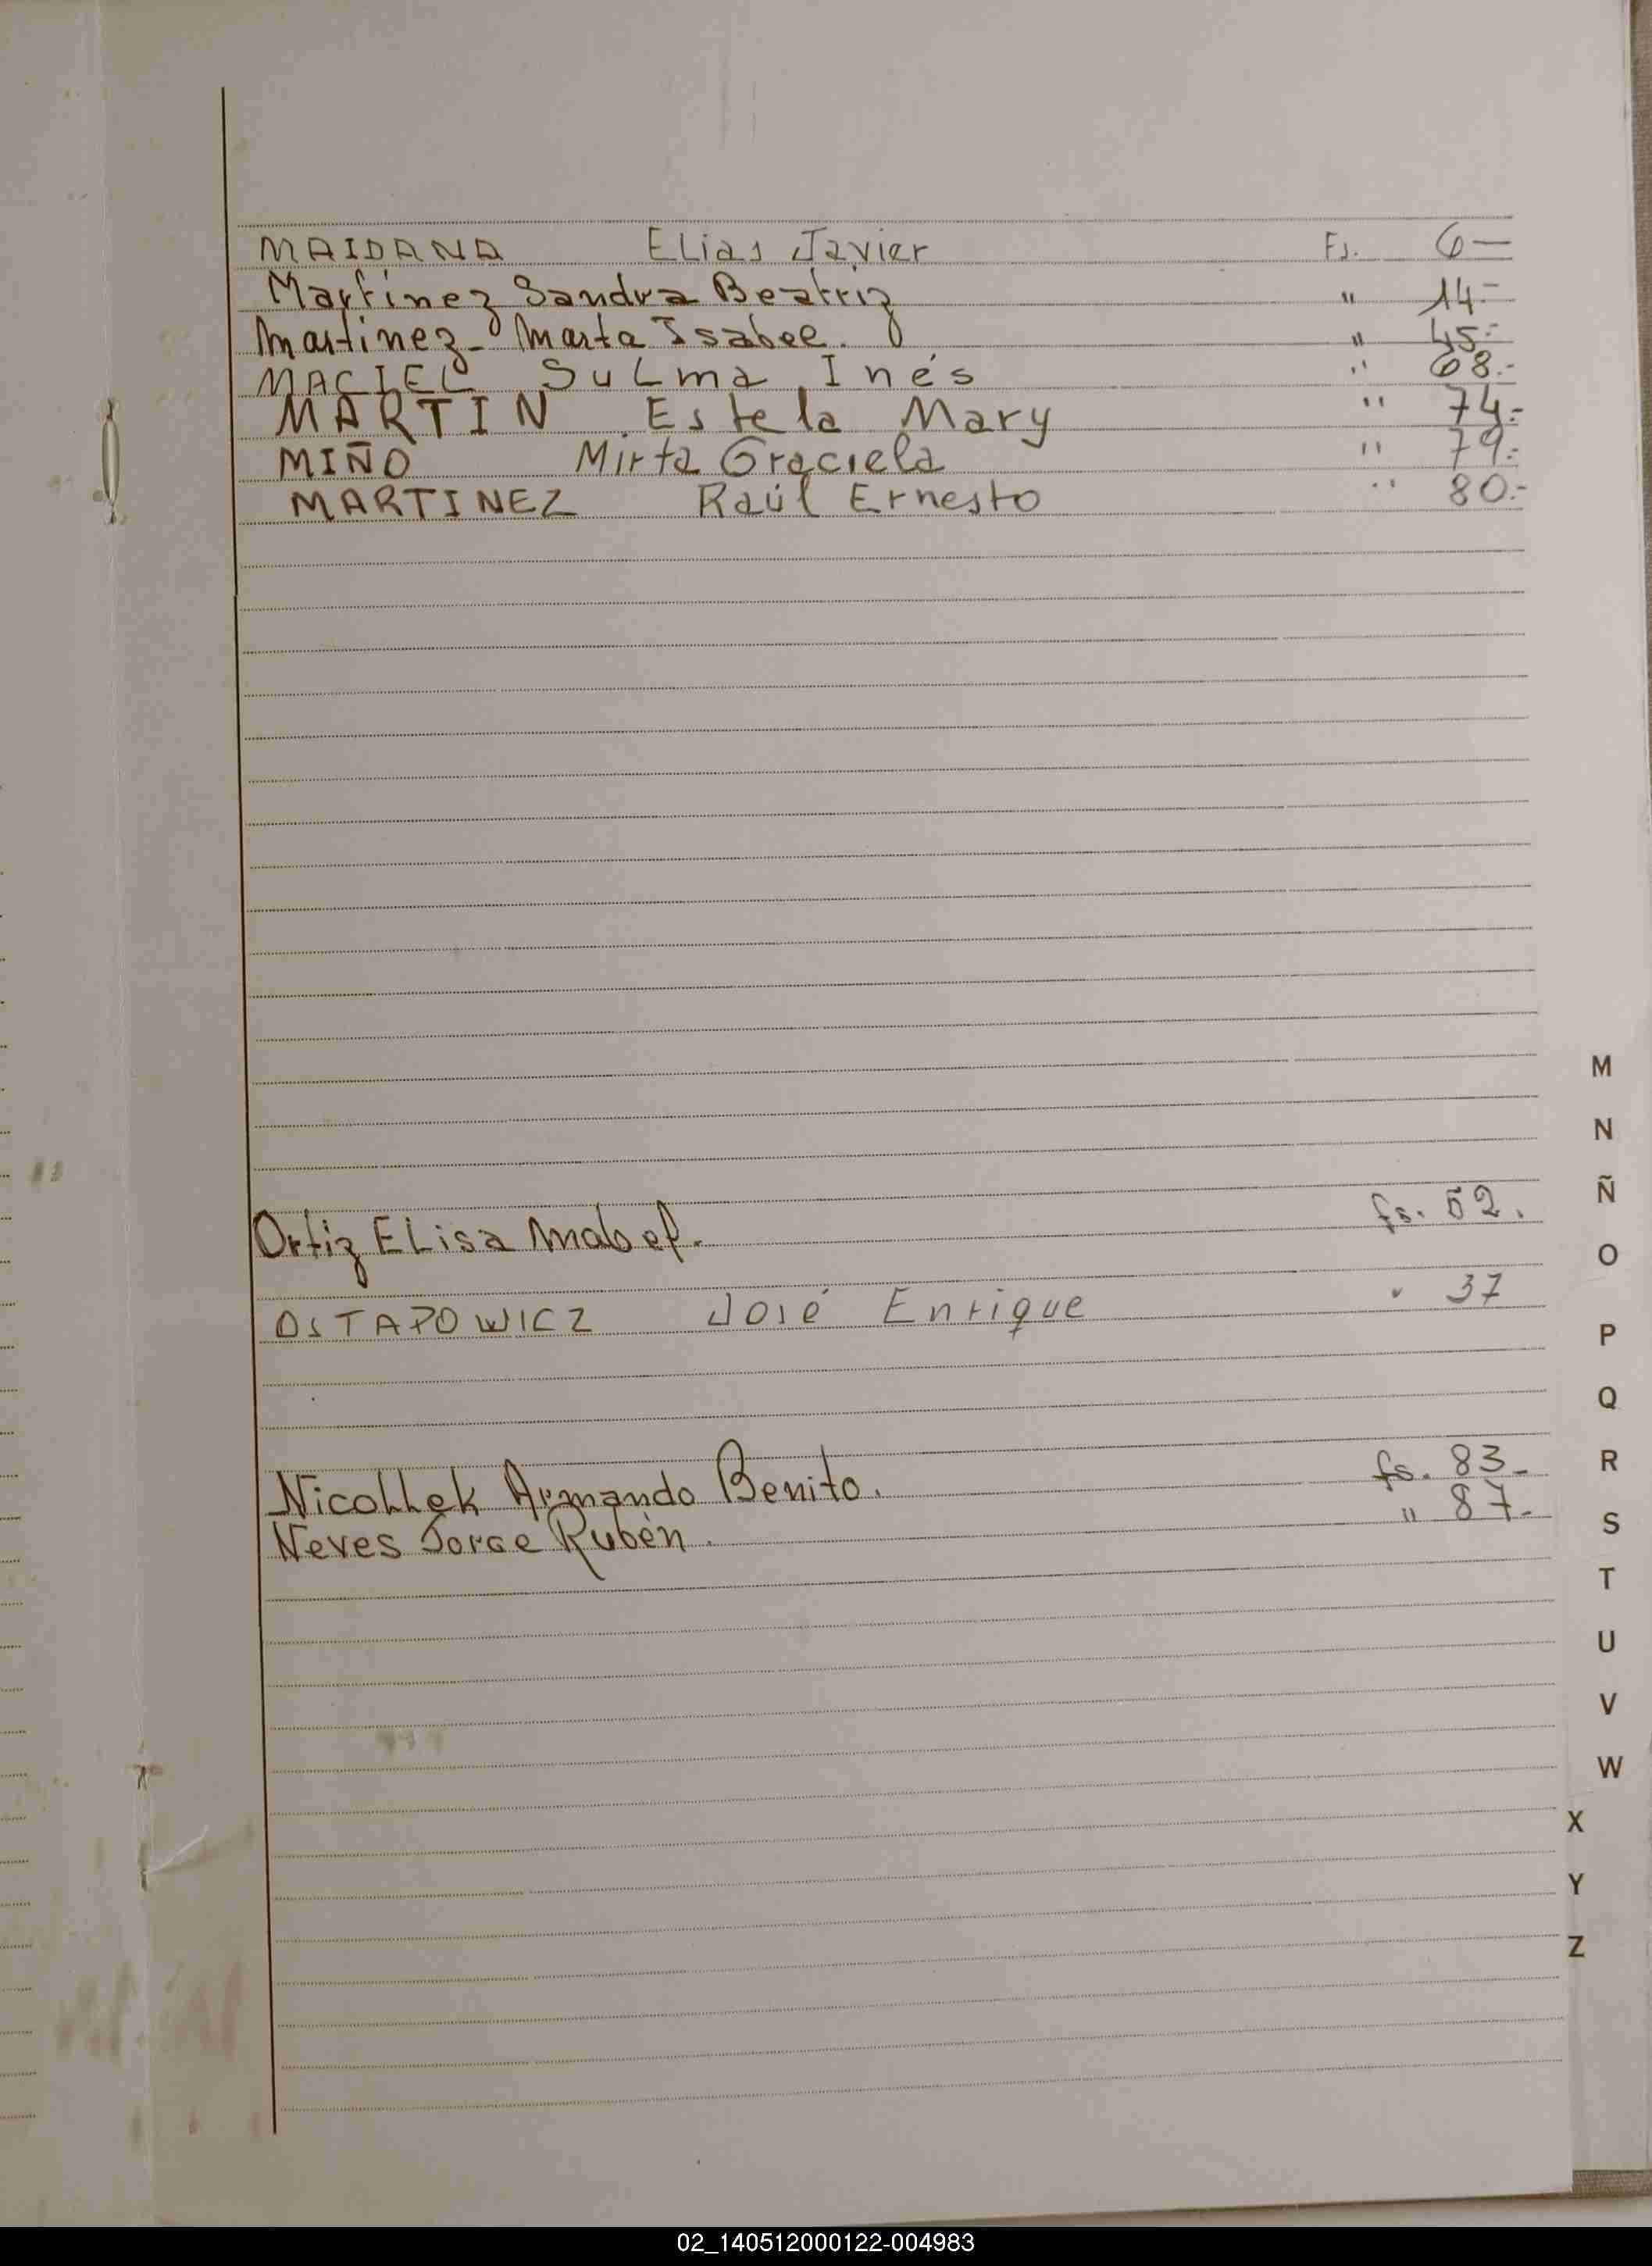 MAIDANA Elias Javier Fs. 6—
Martínez Sandra Beatriz " 14.-
Martinez- Marta Isabel. " 45.-
MACIEL Sulma Inés " 68.-
MARTIN Estela Mary " 74.-
MIÑO Mirta Graciela " 79.-
MARTINEZ Raúl Ernesto " 80.-
M
N
Ñ
Ortiz Elisa Mabel. fs. 52.
O
OSTAPOWICZ José Enrique " 37
P
Q
Nicollek Armando Benito. fs. 83-
R
Neves Jorge Rubén. " 87-
S
T
U
V
W
X
Y
Z
02_140512000122-004983